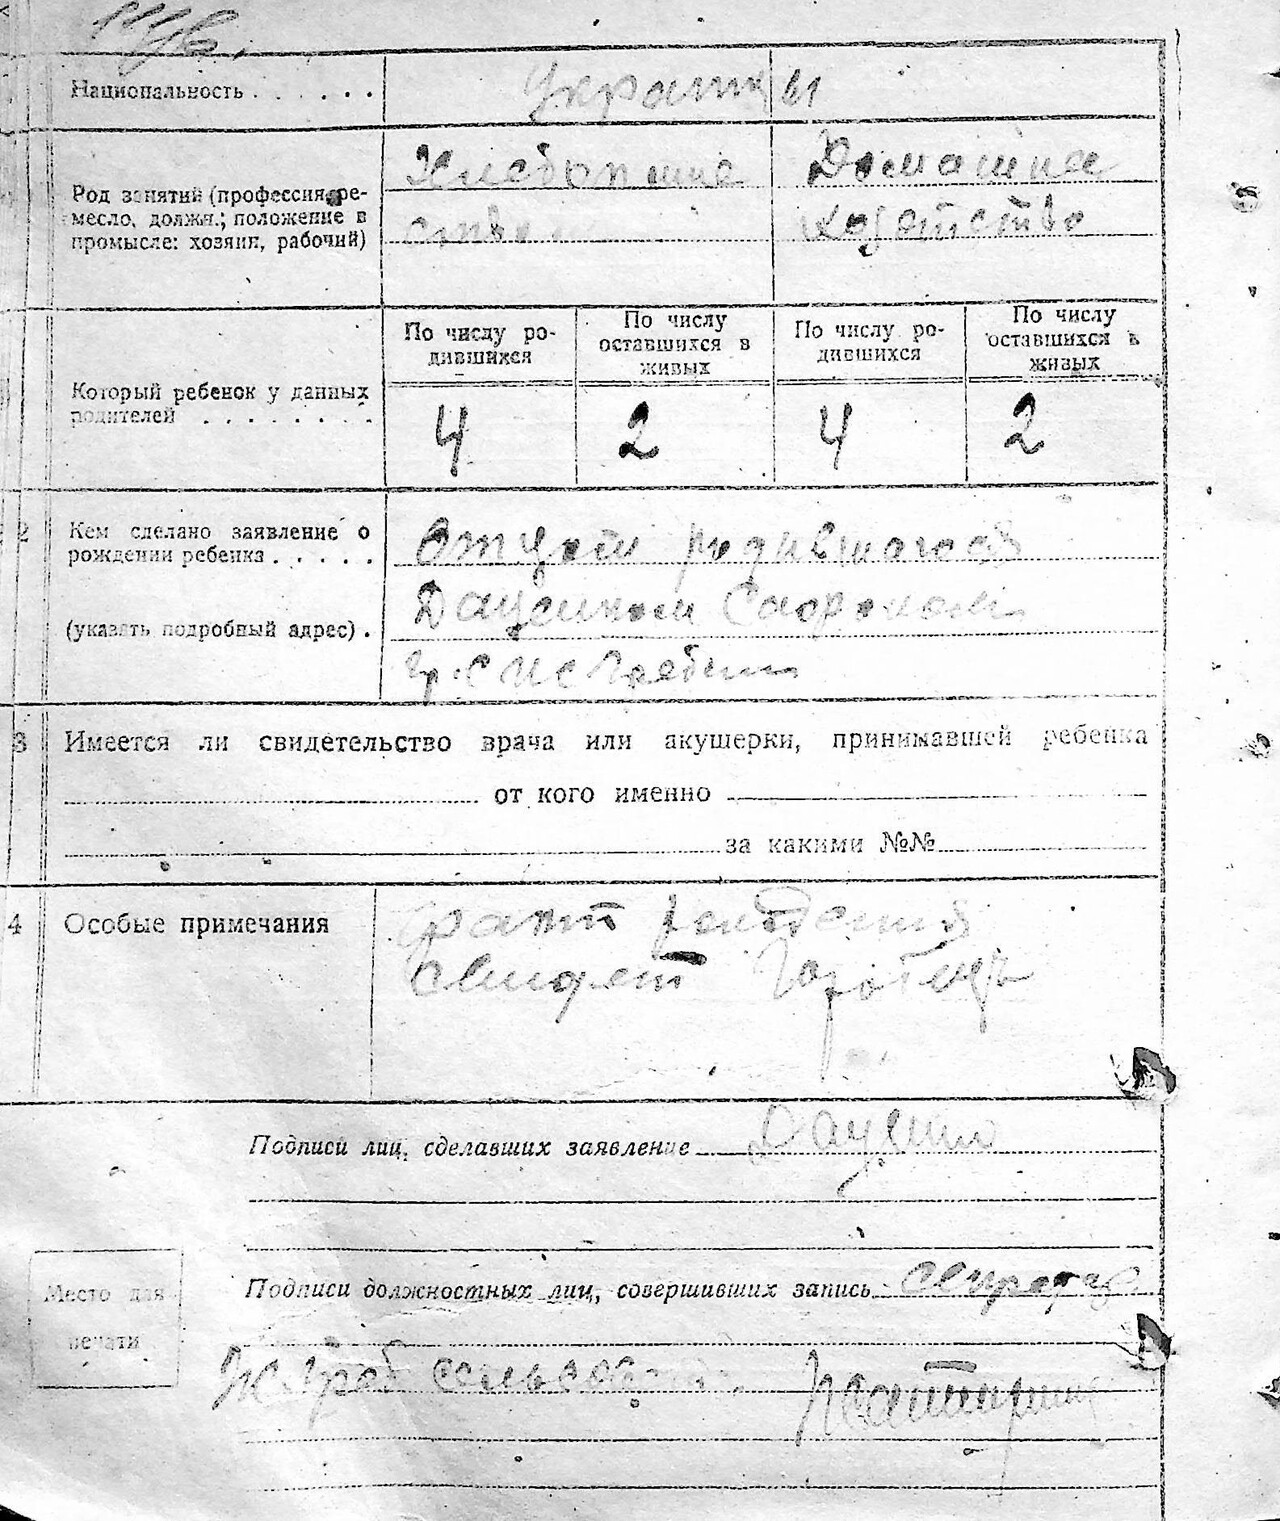 Национальность . . . . . .
Украинцы
Род занятий (профессия, ре-
месло, должн.; положение в
промысле: хозяин, рабочий)
Хлебопаше
ством
Домашнее
хозяйство
По числу ро-
дившихся
По числу
оставшихся в
живых
По числу ро-
дившихся
По числу
оставшихся в
живых
Который ребенок у данных
родителей . . . . . . . .
4 2 4 2
2 Кем сделано заявление о
рождении ребенка . . . . .
(указать подробный адрес) .
Отцом родившагося
Даценком
гр. с
3 Имеется ли свидетельство врача или акушерки, принимавшей ребенка
от кого именно
за какими №№
4 Особые примечания
факт рождения
Подписи лиц, сделавших заявление
Место для
печати
Подписи должностных лиц, совершивших запись